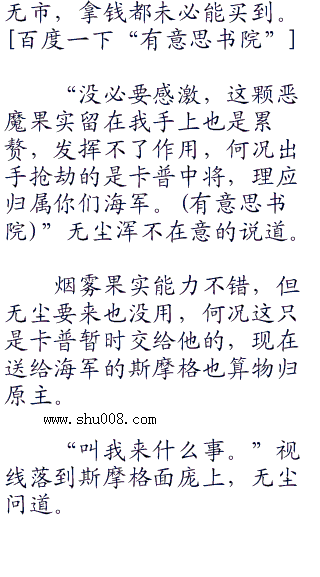 无市，拿钱都未必能买到。
[百度一下“有意思书院”]
“没必要感激，这颗恶
魔果实留在我手上也是累
赘，发挥不了作用，何况出
手抢劫的是卡普中将，理应
归属你们海军。(有意思书
院)”无尘浑不在意的说道。
烟雾果实能力不错，但
无尘要来也没用，何况这只
是卡普暂时交给他的，现在
送给海军的斯摩格也算物归
原主。
www.shu008.com
“叫我来什么事。”视
线落到斯摩格面庞上，无尘
问道。